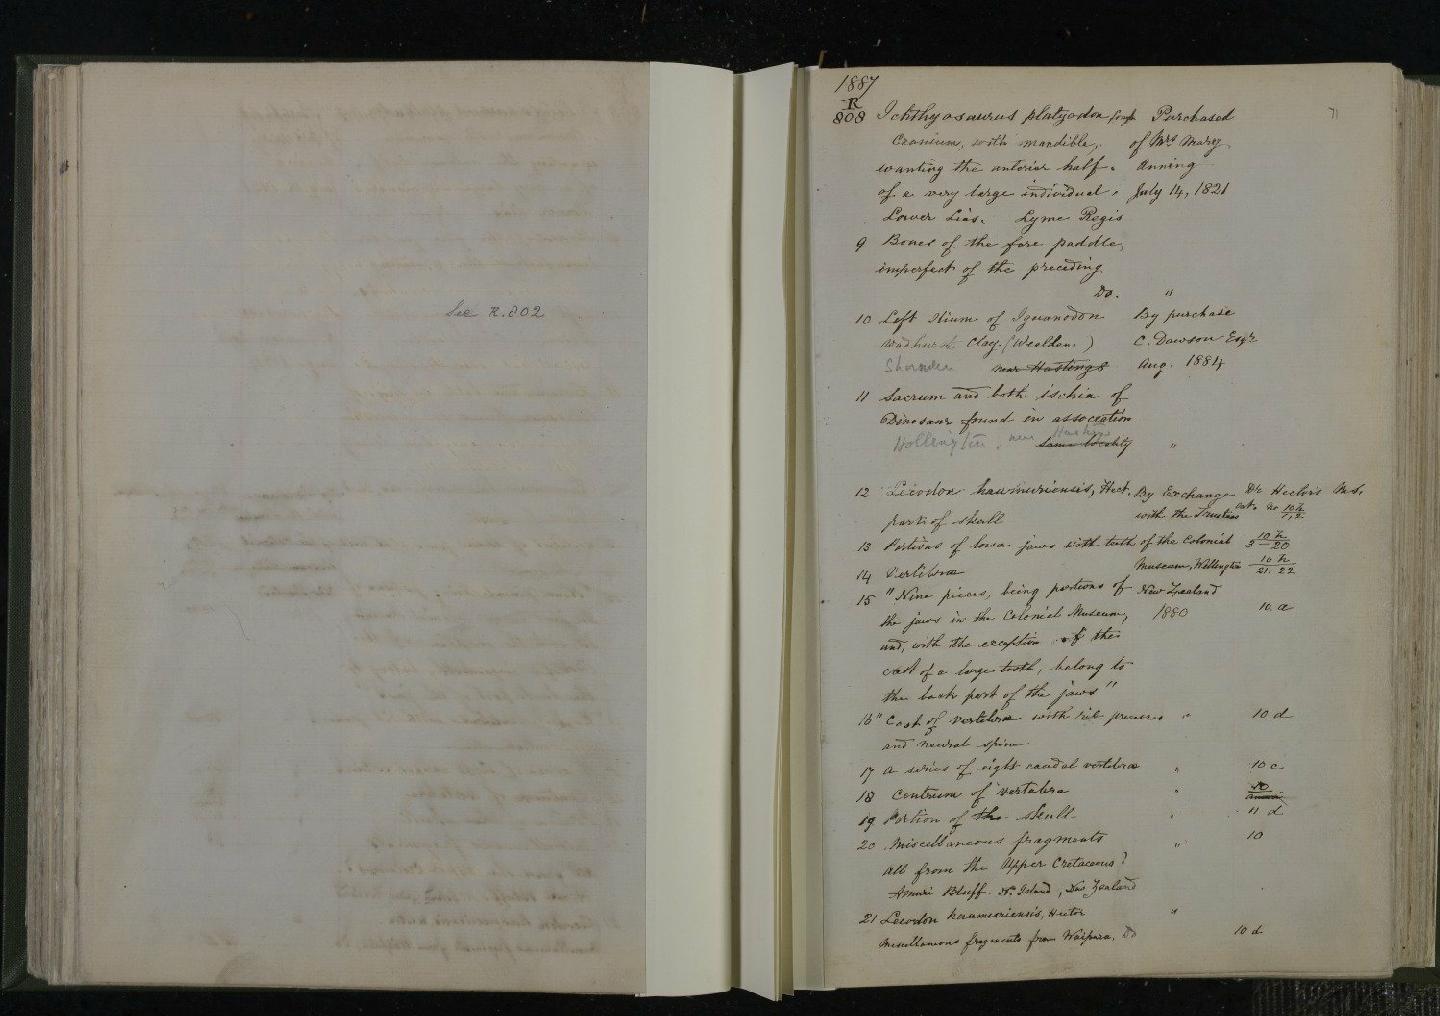 See R.802
1887
71
R
808 Ichthyosaurus platyodon Conyb Purchased
Cranium, with mandible, of Mrs Mary
wanting the anterior half Anning
of a very large individual, July 14, 1821
Lower Lias. Lyme Regis
9 Bones of the fore paddle,
imperfect of the preceding.
Do. "
10 Left Ilium of Iguanodon By purchase
Wadhurst Clay. (Wealden.) C. Dawson Esqr
near Hastings Aug. 1884
11 Sacrum and both ischia of
Dinosaur found in association
Hollington, near Hastings Same locality "
12 Leiodon haumuriensis, Hect. By Exchange Dr Hector's M.S.
part of skull with the Trustees Cat. No 10 h / 1, 2
13 Portions of lower jaws with teeth of the Colonial 10 h / 3 - 20
14 Vertebra Museum, Wellington 10 h / 21. 22
15 "Nine pieces, being portions of New Zealand
the jaws in the Colonial Museum, 1880 10. a
and, with the exception of the
cast of a large tooth, belong to
the back part of the jaws"
16 "Cast of vertebra with rib process " 10 d
and neural spine
17 A series of eight caudal vertebra " 10 c
18 Centrum of vertebra "
19 Portion of the skull " 11 d
20 Miscellaneous fragments " 10
all from the Upper Cretaceous?
Amuri Bluff. N. Island, New Zealand
21 Leiodon haumuriensis, Hector "
Miscellaneous fragments from Waipara, Do 10 d